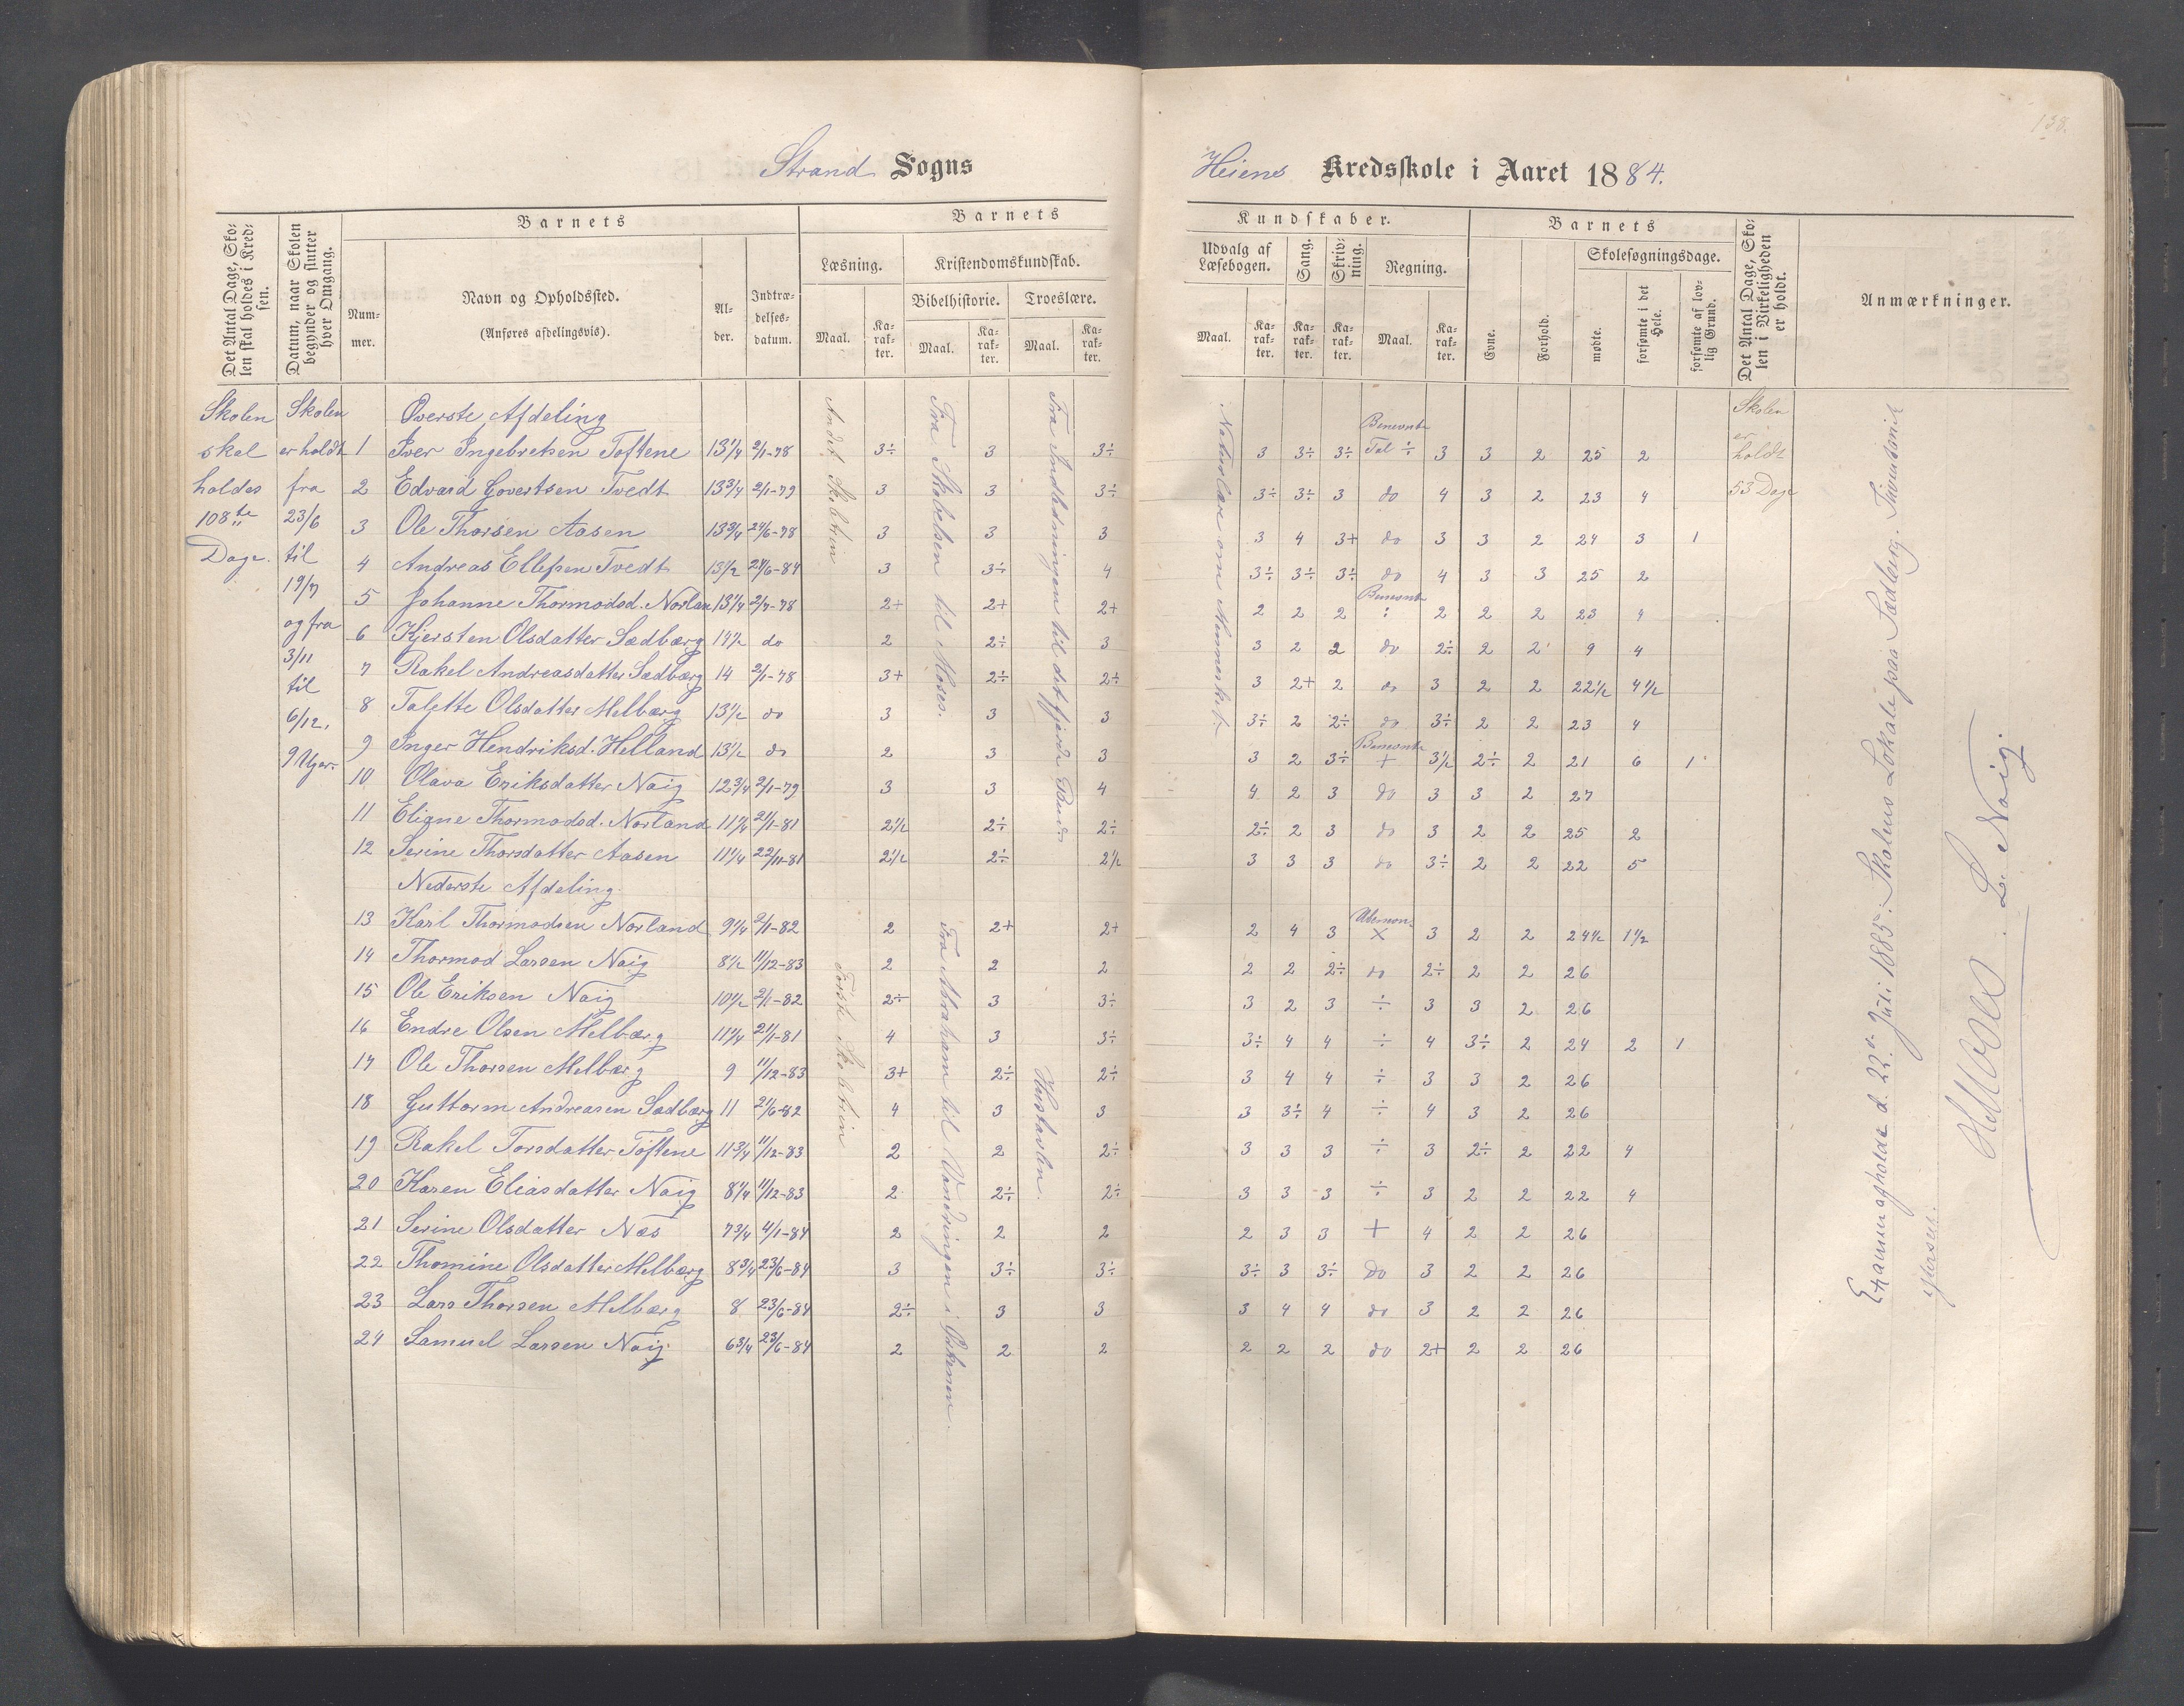 138.
Strand Sogns
Heiens Kredsskole i Aaret 1884.
Det Antal Dage, Skolen skal holdes i Kredsen.
Datum, naar Skolen begynder og slutter hver Omgang.
Barnets
Nummer.
Navn og Opholdssted.
(Anføres afdelingsvis).
Alder.
Indtrædelsesdatum.
Barnets
Læsning.
Maal.
Karakter.
Kristendomskundskab.
Bibelhistorie.
Maal.
Karakter.
Troeslære.
Maal.
Karakter.
Kundskaber.
Udvalg af Læsebogen.
Maal.
Karakter.
Sang.
Karakter.
Skrivning.
Karakter.
Regning.
Maal.
Karakter.
Barnets
Evne.
Forhold.
Skolesøgningsdage.
mødte.
forsømte i det Hele.
forsømte af lovlig Grund.
Det Antal Dage, Skolen i Virkeligheden er holdt.
Anmærkninger.
Skolen
skal
holdes
108te
Dage.
Skolen
er holdt
fra
23/6
til
19/7
og fra
3/11
til
6/12.
9 Uger.
Øverste Afdeling
1 Iver Ingebretsen Toftene 13 1/4 2/1-78 3÷ 3 3÷ 3 3÷ 3÷ Benevnte Tal ÷ 3 3 2 25 2
2 Edvard Govertsen Tvedt 13 3/4 2/1-79 3 3 3÷ 3÷ 3÷ 3 do 4 3 2 23 4
3 Ole Thorsen Aasen 13 3/4 24/6-78 3 3 3 3 4 3+ do 3 3 2 24 3 1
4 Andreas Ellefsen Tvedt 13 1/2 24/6-84 3 3÷ 4 3÷ 3÷ 3÷ do 4 3 3 25 2
5 Johanne Thormodsd. Norlan 13 1/4 2/7-78 2+ 2+ 2+ 2 2 2 Benevnte : 2 2 2 23 4
6 Kjersten Olsdatter Sædbærg 14 1/2 do 2 2÷ 3 3 2 2 do 2÷ 2 2 9 4
7 Rakel Andreasdatter Sædbærg 14 2/1-78 3+ 2÷ 2÷ 3 2+ 2 do 3 2 2 22 1/2 4 1/2
8 Taljette Olsdatter Melbærg 13 1/2 do 3 3 3 3÷ 2 2÷ do 3÷ 2 2 23 4
9 Inger Hendriksd. Helland 13 1/2 do 2 3 3 3 2 3÷ Benevnte + 3 1/2 2÷ 2 21 6 1
10 Olava Eriksdatter Naig 12 3/4 2/1-79 3 3 4 4 2 3 do 3 3 2 27
11 Eliane Thormodsd. Norland 11 3/4 21/1-81 2 1/2 2÷ 2÷ 2÷ 2 3 do 3 2 2 25 2
12 Serine Thorsdatter Aasen 11 1/4 22/11-81 2 1/2 2÷ 2 1/2 3 3 3 do 3÷ 2 2 22 5
Nederste Afdeling
13 Karl Thormodsen Norland 9 1/4 2/1-82 2 2+ 2+ 2 4 3 Ubenevn. × 3 2 2 24 1/2 1 1/2
14 Thormod Larsen Naig 8 1/2 11/12-83 2 2 2 2 2 2÷ do 2÷ 2 2 26
15 Ole Eriksen Naig 10 1/2 2/1-82 2÷ 3 3÷ 3 2 3 ÷ 3 3 2 26
16 Endre Olsen Melbærg 11 1/4 21/1-81 4 3 3÷ 3÷ 4 4 ÷ 4 3÷ 2 24 2 1
17 Ole Thorsen Melbærg 9 11/12-83 3+ 2÷ 2÷ 3 4 4 ÷ 3 3 2 26
18 Guttorm Andreasen Sædbærg 11 21/6-82 4 3 3 3 3÷ 4 ÷ 4 3 2 26
19 Rakel Torsdatter Toftene 11 3/4 11/12-83 2 2 2÷ 3 3 3 ÷ 3 2÷ 2 22 4
20 Karen Eliasdatter Naig 8 1/4 11/12-83 2 2÷ 2÷ 3 3 3 ÷ 3 2 2 22 4
21 Serine Olsdatter Næs 7 3/4 4/1-84 2 2 2 2 3 3 + 4 2 2 26
22 Thomine Olsdatter Melbærg 8 3/4 23/6-84 3 3÷ 3÷ 3÷ 3 3÷ Do 3 2 2 26
23 Lars Thorsen Melbærg 8 23/6-84 2÷ 3 3 3 4 4 do 3 2 2 26
24 Samuel Larsen Naig 6 3/4 23/6-84 2 2 2 2 2 2 do 2+ 2 2 26
Andet Skoletrin
Første Skoletrin
Fra Skabelsen til Moses.
Fra Abraham til Vandringen i Ørkenen.
Fra Indledningen til det fjerde Bud
Hustavlen.
Naturlære om Mennesket
Skolen
er
holdt
53 Dage
Examen afholdt d. 22de Juli 1885. Skolens Lokale paa Sædberg.
L. Naig.